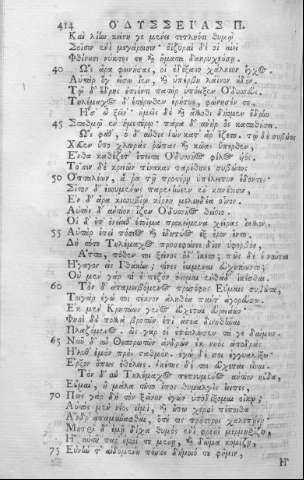 414 ΟΔΥΣΣΕΙΑΣ Π.
Καὶ λίην κείνη γε μένει τετληότι θυμῷ
Σοῖσιν ἐνὶ μεγάροισιν· ὀϊζυραὶ δέ οἱ αἰεὶ
Φθίνουσι νύκτες τε καὶ ἤματα δακρυχεούσῃ.
40 Ὣς ἄρα φωνήσας, οἱ ἐδέξατο χάλκεον ἔγχος·
Αὐτὰρ ὅγ' εἴσω ἴεν, καὶ ὑπέρβη λάϊνον οὐδόν.
Τῷ δ' ἕδρης ἐπιόντι πατὴρ ὑπόειξεν Ὀδυσσεύς·
Τηλέμαχος δ' ἑτέρωθεν ἐρήτυε, φώνησέν τε·
Ἧσ' ὦ ξεῖν'· ἡμεῖς δὲ καὶ ἄλλοθι δήομεν ἕδρην
45 Σταθμῷ ἐν ἡμετέρῳ· παρὰ δ' ἀνὴρ ὃς καταθήσει.
Ὣς φάθ', ὁ δ' αὖτις ἰὼν κατ' ἄρ' ἕζετο· τῷ δὲ συβώτης
Χεῦεν ὕπο χλωρὰς ῥῶπας καὶ κῶας ὕπερθεν,
Ἔνθα καθέζετ' ἔπειτα Ὀδυσσῆος φίλος υἱός.
Τοῖσιν δὲ κρειῶν πίνακας παρέθηκε συβώτης
50 Ὀπταλέων, ἅ ῥα τῇ προτέρῃ ὑπέλειπον ἔδοντες·
Σῖτον δ' ἐσσυμένως παρενήνεεν ἐν κανέοισιν,
Ἐν δ' ἄρα κισσυβίῳ κίρνη μελιηδέα οἶνον·
Αὐτὸς δ' ἀντίον ἷζεν Ὀδυσσῆος θείοιο.
Οἱ δ' ἐπ' ὀνείαθ' ἑτοῖμα προκείμενα χεῖρας ἴαλλον.
55 Αὐτὰρ ἐπεὶ πόσιος καὶ ἐδητύος ἐξ ἔρον ἕντο,
Δὴ τότε Τηλέμαχος προσεφώνεε δῖον ὑφορβόν,
Ἄττα, πόθεν τοι ξεῖνος ὅδ' ἵκετο; πῶς δέ ἑ ναῦται
Ἤγαγον εἰς Ἰθάκην; τίνες ἔμμεναι εὐχετόωντο;
Οὐ μὲν γάρ τί ἑ πεζὸν ὀΐομαι ἐνθάδ' ἱκέσθαι.
60 Τὸν δ' ἀπαμειβόμενος προσέφης Εὔμαιε συβῶτα,
Τοιγὰρ ἐγώ τοι τέκνον ἀληθέα πάντ' ἀγορεύσω.
Ἐκ μὲν Κρητάων γένος εὔχεται εὐρειάων·
Φησὶ δὲ πολλὰ βροτῶν ἐπὶ ἄστεα δινηθῆναι
Πλαζόμενος· ὣς γάρ οἱ ἐπέκλωσεν τά γε δαίμων.
65 Νῦν δ' αὖ Θεσπρωτῶν ἀνδρῶν ἐκ νηὸς ἀποδρὰς
Ἤλυθ' ἐμὸν πρὸς σταθμόν· ἐγὼ δέ τοι ἐγγυαλίξω·
Ἔρξον ὅπως ἐθέλεις, ἱκέτης δέ τοι εὔχεται εἶναι.
Τὸν δ' αὖ Τηλέμαχος πεπνυμένος ἀντίον ηὔδα,
Εὔμαι', ἦ μάλα τοῦτο ἔπος θυμαλγὲς ἔειπες.
70 Πῶς γὰρ δὴ τὸν ξεῖνον ἐγὼν ὑποδέξομαι οἴκῳ;
Αὐτὸς μὲν νέος εἰμὶ, καὶ οὔπω χερσὶ πέποιθα
Ἄνδρ' ἀπαμύνασθαι, ὅτε τις πρότερος χαλεπήνῃ·
Μητρὶ δ' ἐμῇ δίχα θυμὸς ἐνὶ φρεσὶ μερμηρίζει,
Ἢ αὐτοῦ παρ' ἐμοί τε μένῃ, καὶ δῶμα κομίζῃ,
75 Εὐνήν τ' αἰδομένη πόσιος δήμοιό τε φῆμιν,
Ἢ